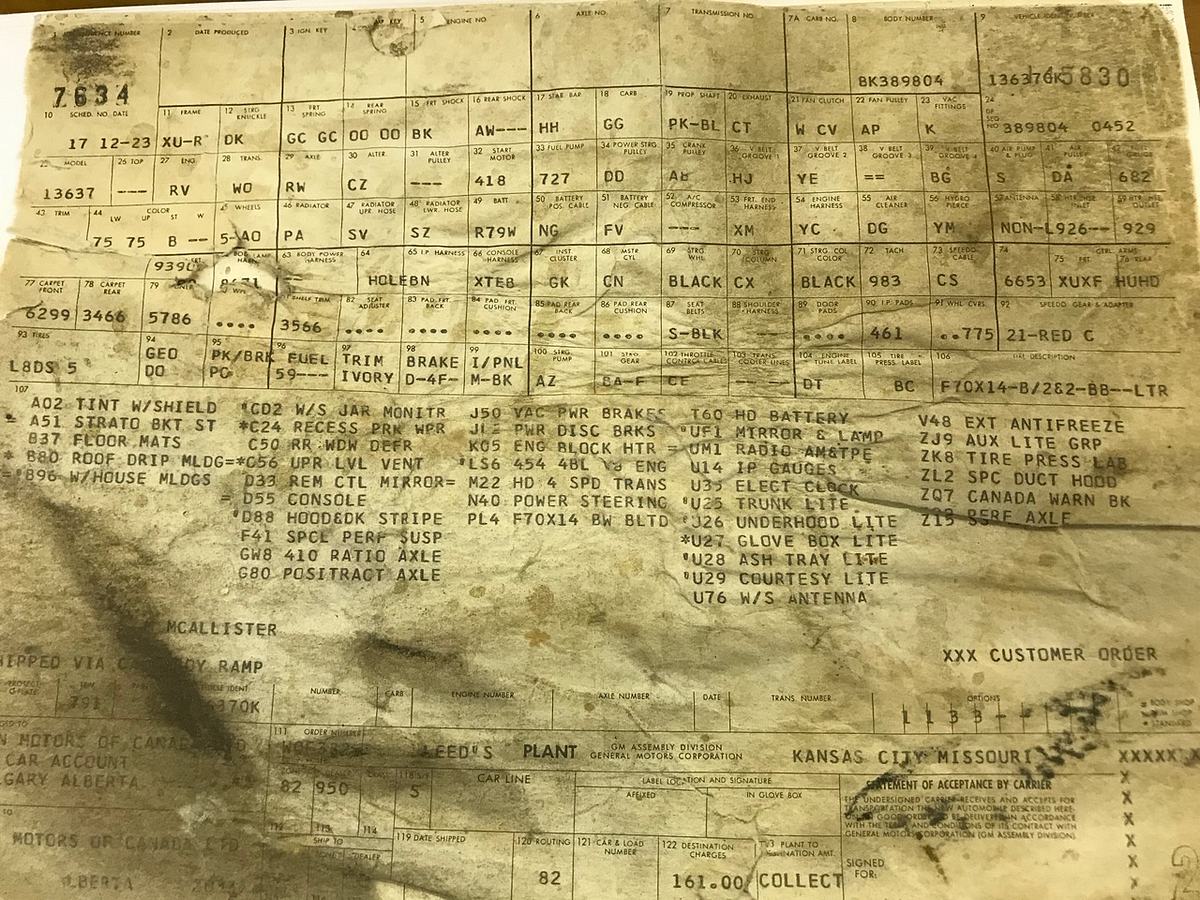 2 DATE PRODUCED 3 IGN. KEY 5 ENGINE NO 6 AXLE NO. 7 TRANSMISSION NO. 7A CARB NO. 8 BODY NUMBER 9
7634 BK389804 136370K 145830
10 SCHED. NO. DATE 11 FRAME 12 STRG KNUCKLE 13 FRT SPRING 14 REAR SPRING 15 FRT SHOCK 16 REAR SHOCK 17 STAB BAR 18 CARB 19 PROP SHAFT 20 EXHAUST 21 FAN CLUTCH 22 FAN PULLEY 23 VAC FITTINGS 24
17 12-23 XU-R DK GC GC 00 00 BK AW--- HH GG PK-BL CT W CV AP K 389804 0452
25 MODEL 26 TOP 27 ENG 28 TRANS. 29 AXLE 30 ALTER. 31 ALTER PULLEY 32 START MOTOR 33 FUEL PUMP 34 POWER STRG PULLEY 35 CRANK PULLEY 36 V BELT GROOVE 1 37 V BELT GROOVE 2 38 V BELT GROOVE 3 39 V BELT GROOVE 4 40 AIR PUMP & PLUG 41 AIR PULLEY
13637 ---- RV WO RW CZ --- 418 727 DD AB HJ YE == BG S DA 682
43 TRIM 44 LW COLOR UP ST W 45 WHEELS 46 RADIATOR 47 RADIATOR UPR. HOSE 48 RADIATOR LWR. HOSE 49 BATT 50 BATTERY POS. CABLE 51 BATTERY NEG. CABLE 52 A/C COMPRESSOR 53 FRT. END HARNESS 54 ENGINE HARNESS 55 AIR CLEANER 56 HYDRO PIERCE 57 ANTENNA
75 75 B -- 5-AO PA SV SZ R79W NG FV ---- XM YC DG YM NON-L 926-- 929
63 BODY POWER HARNESS 64 65 I.P. HARNESS 66 CONSOLE HARNESS 67 INST CLUSTER 68 MSTR CYL 69 STRG WHL 70 STRG COLUMN 71 STRG. COL COLOR 72 TACH 73 SPEEDO CABLE 74 75 FRT. CTRL. ARMS 76 REAR
HOLEBN XTEB GK CN BLACK CX BLACK 983 CS 6653 XUXF HUHD
77 CARPET FRONT 78 CARPET REAR 79 82 SEAT ADJUSTER 83 PAD. FRT. BACK 84 PAD. FRT. CUSHION 85 PAD REAR BACK 86 PAD REAR CUSHION 87 SEAT BELTS 88 SHOULDER HARNESS 89 DOOR PADS 90 I.P. PADS 91 WHL CVRS. 92 SPEEDO GEAR & ADAPTER
6299 3466 5786 .... 3566 .... .... .... .... .... S-BLK ---- .... 461 ..775 21-RED C
93 TIRES 94 95 96 97 98 99 100 STRG. PUMP 101 STRG GEAR 102 THROTTLE CONTROL CABLES 103 TRANS. COOLER LINES 104 ENGINE TUNE LABEL 105 TIRE PRESS. LABEL 106 TIRE DESCRIPTION
GEO PK/BRK FUEL TRIM BRAKE I/PNL
L8DS 5 DO PG 59--- IVORY D-4F- M-BK AZ BA-F CE ---- DT BC F70X14-B/2&2-BB--LTR
107
A02 TINT W/SHIELD *CD2 W/S JAR MONITR J50 VAC PWR BRAKES T60 HD BATTERY V48 EXT ANTIFREEZE
= A51 STRATO BKT ST *C24 RECESS PRK WPR JL2 PWR DISC BRKS *UF1 MIRROR & LAMP ZJ9 AUX LITE GRP
B37 FLOOR MATS C50 RR WDW DEFR K05 ENG BLOCK HTR = UM1 RADIO AM&TPE ZK8 TIRE PRESS LAB
* B80 ROOF DRIP MLDG =*C56 UPR LVL VENT *LS6 454 4BL V8 ENG U14 IP GAUGES ZL2 SPC DUCT HOOD
=*B96 W/HOUSE MLDGS D33 REM CTL MIRROR = M22 HD 4 SPD TRANS U35 ELECT CLOCK ZQ7 CANADA WARN BK
= D55 CONSOLE N40 POWER STEERING *U25 TRUNK LITE Z15 PERF AXLE
*D88 HOOD&DK STRIPE PL4 F70X14 BW BLTD *U26 UNDERHOOD LITE
F41 SPCL PERF SUSP *U27 GLOVE BOX LITE
GW8 410 RATIO AXLE *U28 ASH TRAY LITE
G80 POSITRACT AXLE *U29 COURTESY LITE
U76 W/S ANTENNA
MCALLISTER
XXX CUSTOMER ORDER
RAMP
NUMBER CARB ENGINE NUMBER AXLE NUMBER DATE TRANS. NUMBER OPTIONS
791 370K 1133--
111 ORDER NUMBER
MOTORS OF CANADA PLANT GM ASSEMBLY DIVISION GENERAL MOTORS CORPORATION KANSAS CITY MISSOURI XXXXX X
CAR ACCOUNT CAR LINE LABEL LOCATION AND SIGNATURE STATEMENT OF ACCEPTANCE BY CARRIER
ALBERTA 82 950 5 AFFIXED IN GLOVE BOX
THE UNDERSIGNED CARRIER RECEIVES AND ACCEPTS FOR
TRANSPORTATION THE NEW AUTOMOBILE DESCRIBED HERE-
IN GOOD ORDER TO BE DELIVERED IN ACCORDANCE
WITH THE TERMS AND CONDITIONS OF ITS CONTRACT WITH
GENERAL MOTORS CORPORATION (GM ASSEMBLY DIVISION).
112 113 114 SHIP TO DEALER 119 DATE SHIPPED 120 ROUTING 121 CAR & LOAD NUMBER 122 DESTINATION CHARGES PLANT TO DESTINATION AMT.
MOTORS OF CANADA LTD
ALBERTA 82 161.00 COLLECT SIGNED FOR: